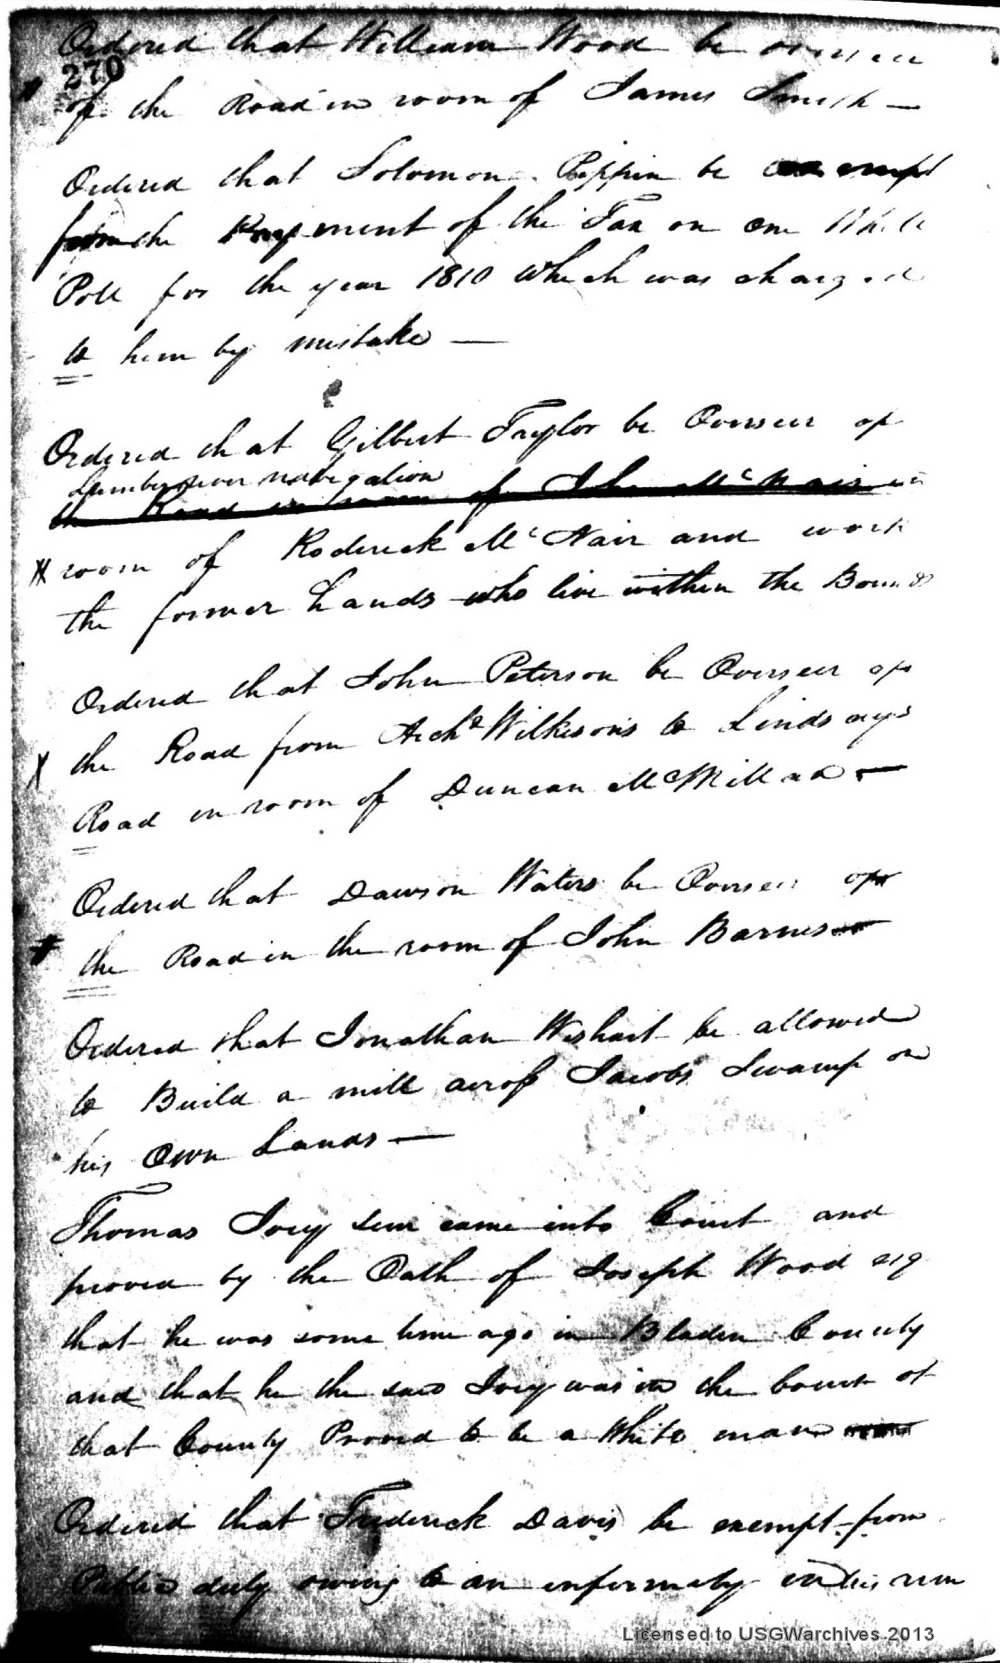 Ordered that William Wood be overseer
270
of the Road in room of James Smith —
Ordered that Solomon Pippin be exempt
from the Payment of the Tax on one White
Poll for the year 1810 which was charged
to him by mistake —
Ordered that Gilbert Taylor be Overseer of
Lumber river navigation
the Road in room of John McNair in
room of Roderick McNair and work
the former hands who live within the Bounds
Ordered that John Peterson be Overseer of
the Road from Archd Wilkisons to Lindsays
Road in room of Duncan McMillan —
Ordered that Dawson Waters be Overseer of
the Road in the room of John Barnes
Ordered that Jonathan Wishart be allowed
to Build a mill across Jacobs Swamp on
his Own Lands —
Thomas Ivey came into Court and
proved by the Oath of Joseph Wood esq
that he was some time ago in Bladen County
and that he the said Ivey was in the Court of
that County Proved to be a White man
Ordered that Frederick Davis be exempt from
Public duty owing to an infirmity in his
Licensed to USGWarchives 2013